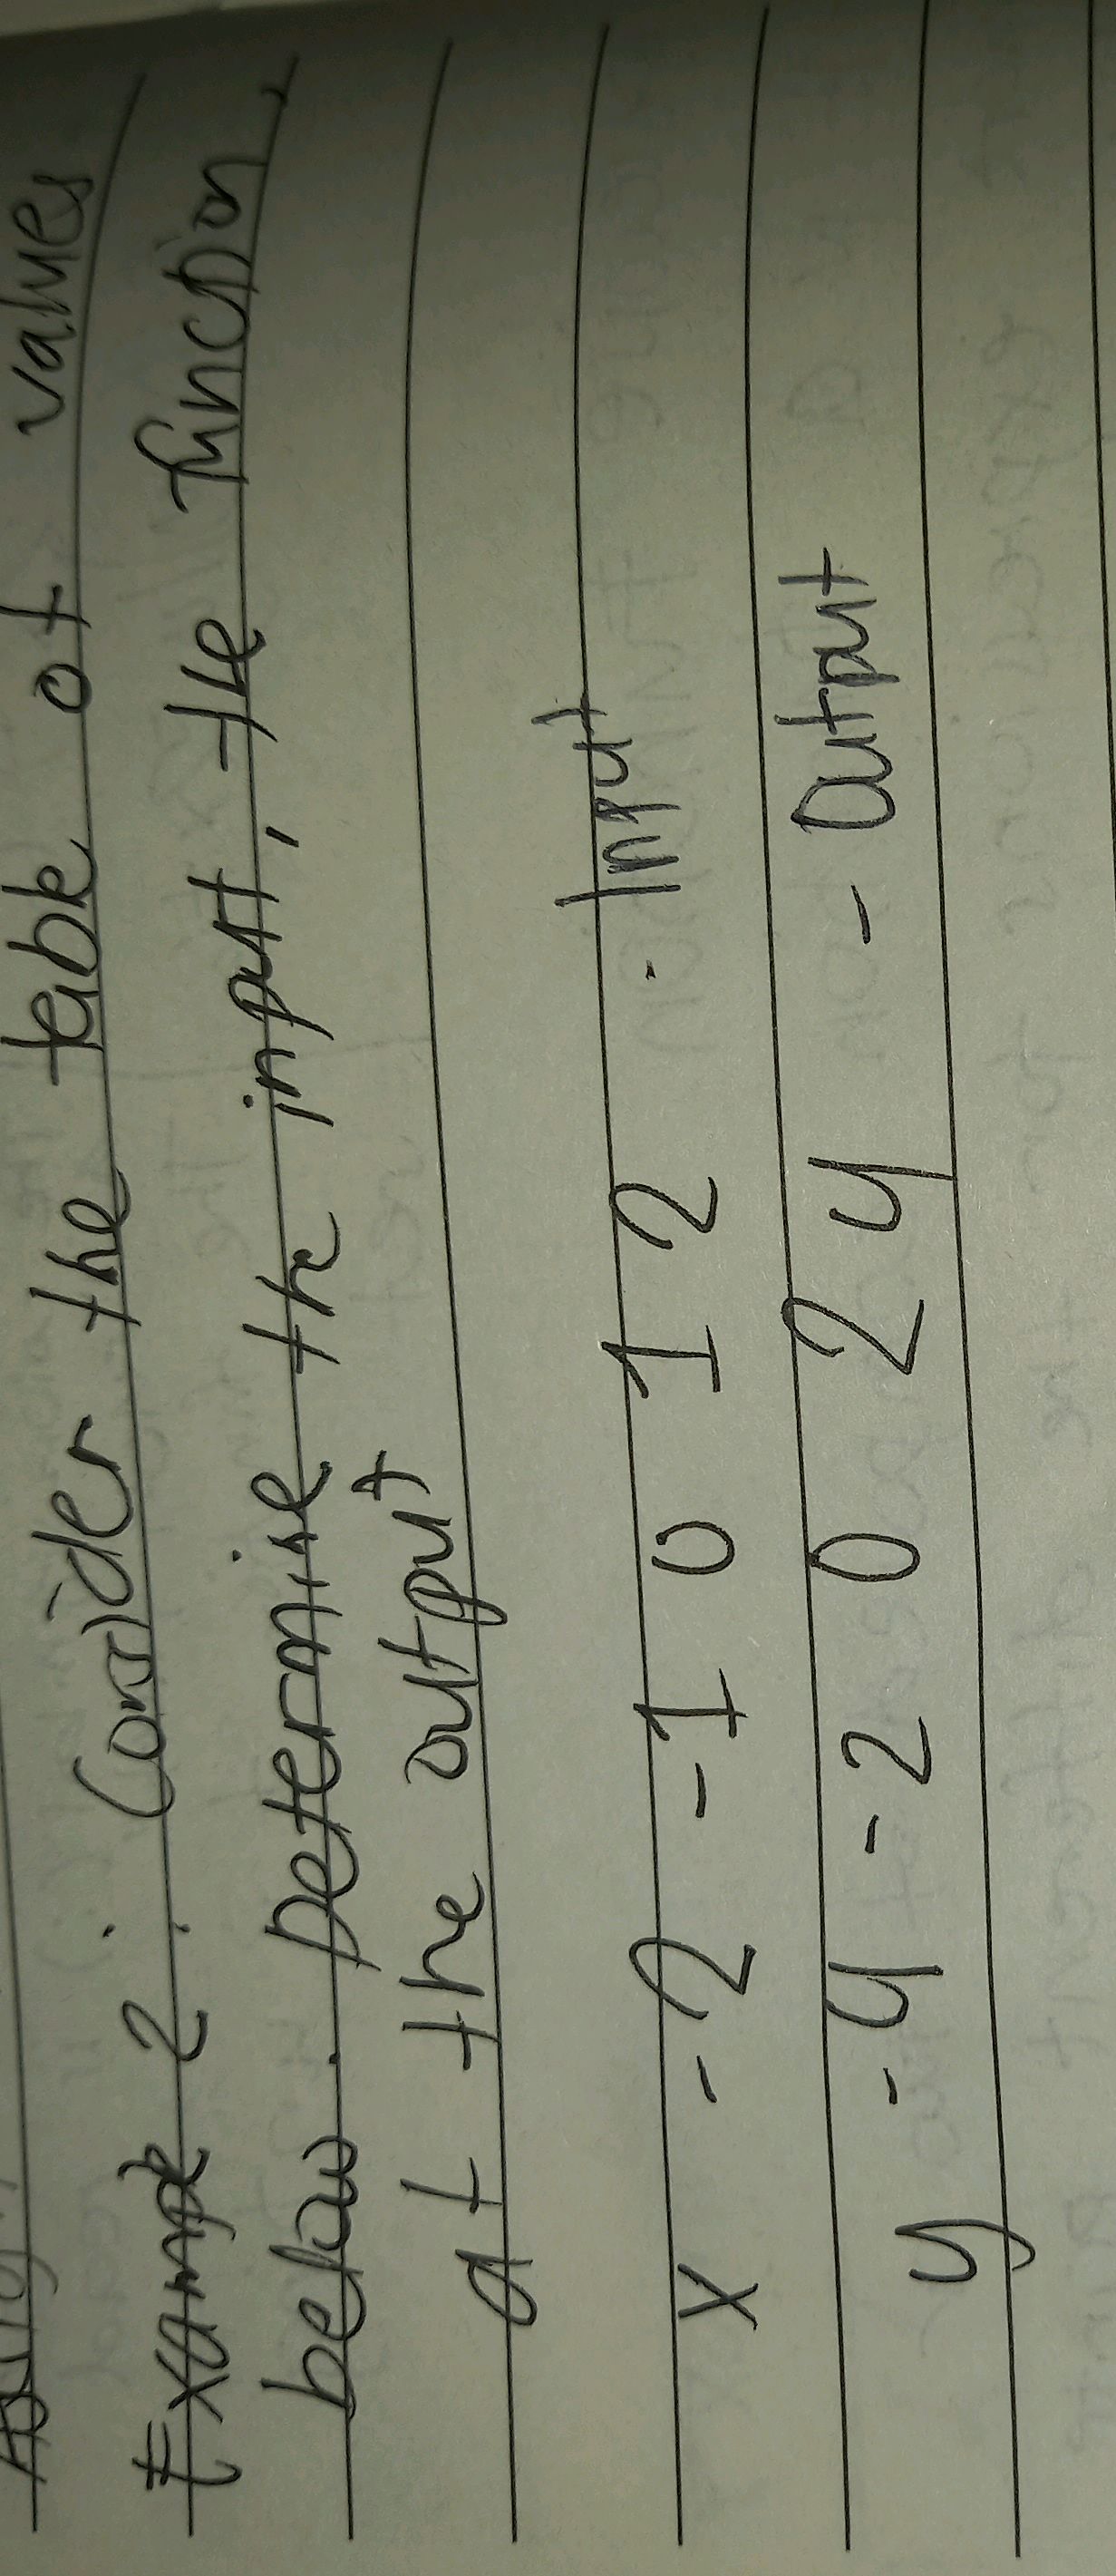 Example 2 : Consider the table of values
below. Determine the input, the function,
at the output
x -2 -1 0 1 2 - Input
y -4 -2 0 2 4 - Output